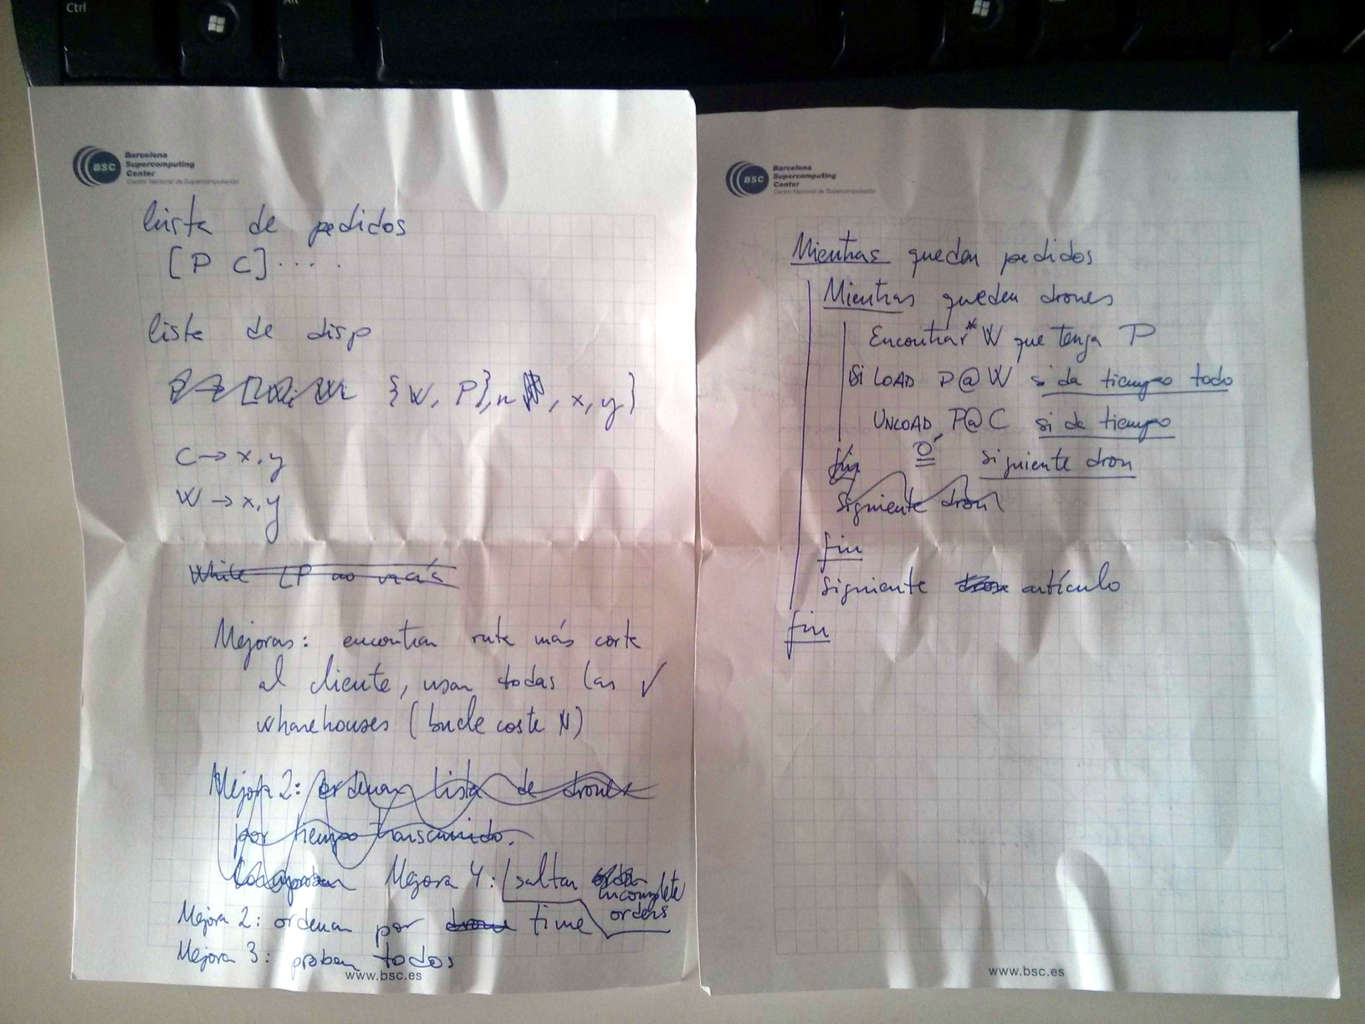 Ctrl
Alt
BSC
Barcelona
Supercomputing
Center
Centro Nacional de Supercomputación
lista de pedidos
[P C].....
lista de disp
{W, P}, n, x, y}
C → x, y
W → x, y
While LP no vacía
Mejoras: encontrar ruta más corta
al cliente, usar todas las ✓
wharehouses (bucle coste N)
Mejora 2: ordenar lista de drones
por tiempo transcurrido.
Comprobar Mejora 4: saltar
incomplete
orders
Mejora 2: ordenar por drone time
Mejora 3: probar todos
www.bsc.es
BSC
Barcelona
Supercomputing
Center
Centro Nacional de Supercomputación
Mientras queden pedidos
Mientras queden drones
Encontrar* W que tenga P
Si LOAD P@W si da tiempo todo
UNLOAD P@C si da tiempo
fin Ó siguiente dron
Siguiente dron
fin
Siguiente artículo
fin
www.bsc.es